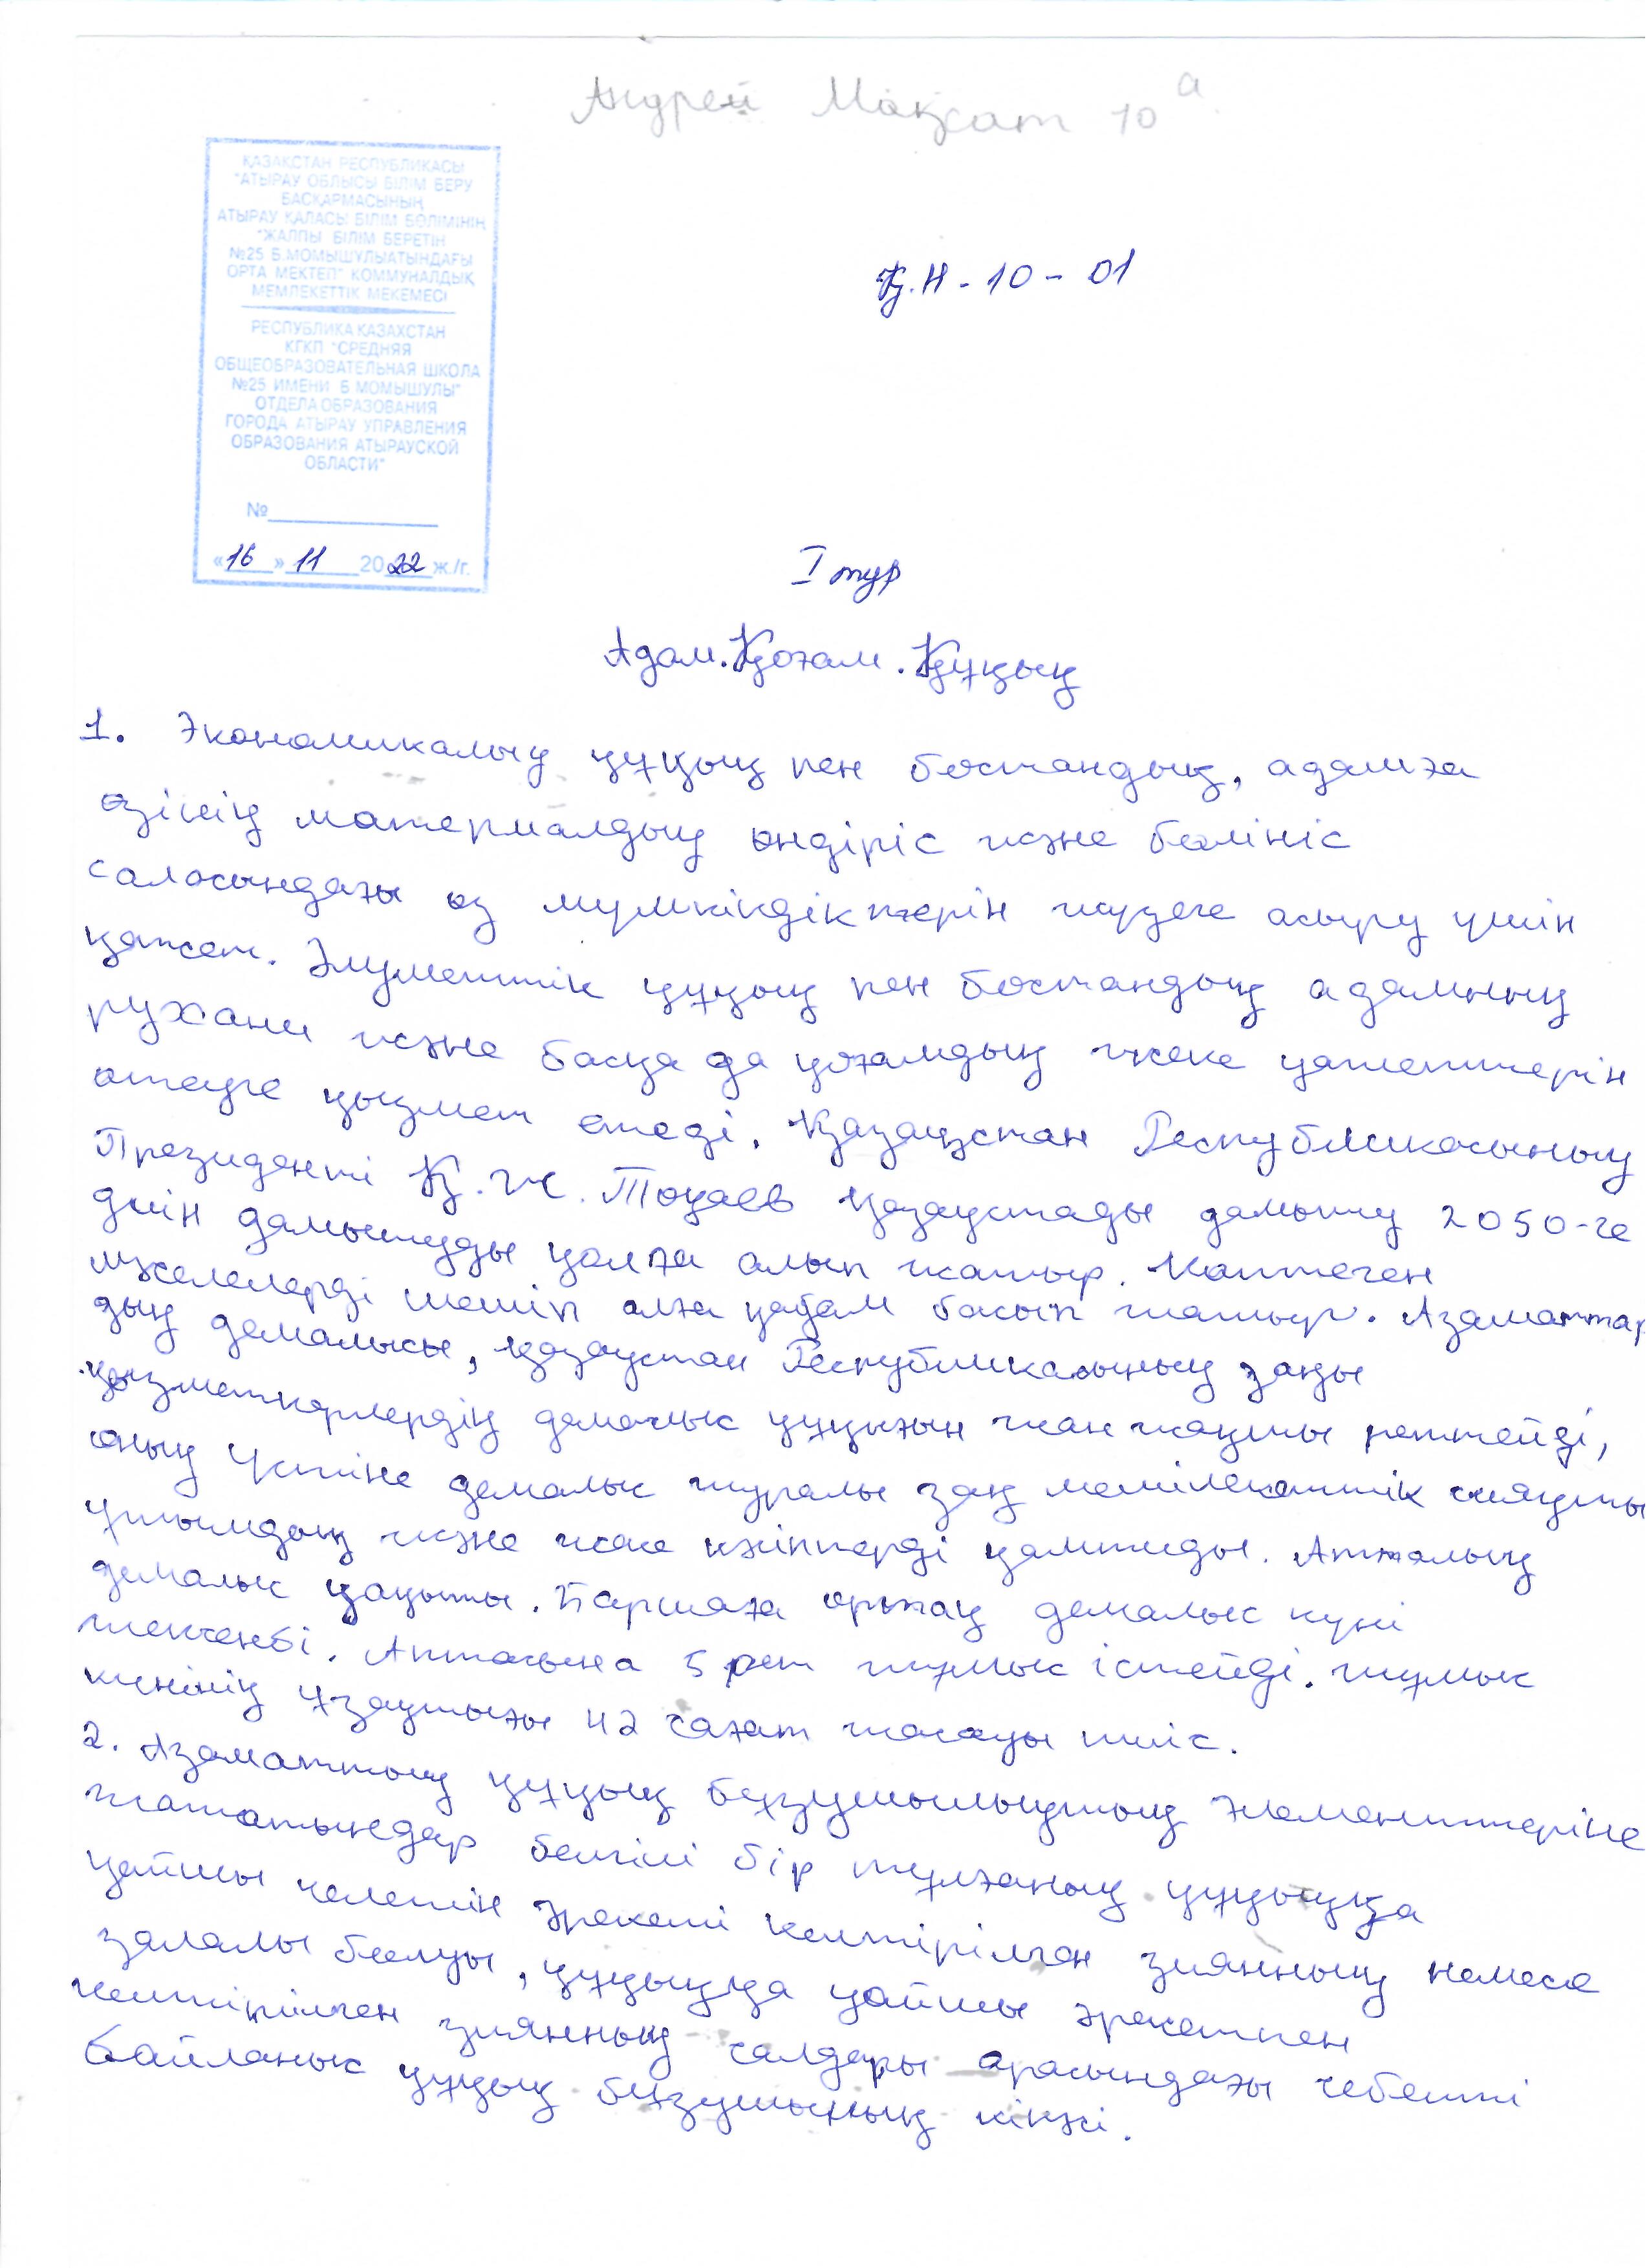 Андрей Мақсат 10 а
ҚАЗАҚСТАН РЕСПУБЛИКАСЫ
"АТЫРАУ ОБЛЫСЫ БІЛІМ БЕРУ
БАСҚАРМАСЫНЫҢ
АТЫРАУ ҚАЛАСЫ БІЛІМ БӨЛІМІНІҢ
"ЖАЛПЫ БІЛІМ БЕРЕТІН
№25 Б.МОМЫШУЛЫАТЫНДАҒЫ
ОРТА МЕКТЕП" КОММУНАЛДЫҚ
МЕМЛЕКЕТТІК МЕКЕМЕСІ
РЕСПУБЛИКА КАЗАХСТАН
КГКП "СРЕДНЯЯ
ОБЩЕОБРАЗОВАТЕЛЬНАЯ ШКОЛА
№25 ИМЕНИ Б МОМЫШУЛЫ"
ОТДЕЛА ОБРАЗОВАНИЯ
ГОРОДА АТЫРАУ УПРАВЛЕНИЯ
ОБРАЗОВАНИЯ АТЫРАУСКОЙ
ОБЛАСТИ"
№
«16» 11 2022 ж./г.
Қ.Н - 10 - 01
I тур
Адам.Қоғам.Құқық
1. Экономикалық құқық пен бостандық, адамға
өзінің материалдық өндіріс және бөлініс
саласындағы өз мүмкіндіктерін жүзеге асыру үшін
қажет. Әлуметтік құқық пен бостандық адамның
рухани және басқа да қоғамдық жеке қажеттерін
өтеуге қызмет етеді. Қазақстан Республикасының
Президенті Қ.Ж. Тоқаев Қазақстады дамыту 2050-ге
дейін дамытуды қолға алып жатыр. Көптеген
мәселелерді шешіп алға қадам басып жатыр. Азаматтар
дың демалысы, Қазақстан Республикасының заңы
қызметкерлердің демалыс құқығын жан жақты реттейді,
оның үстіне демалыс туралы заң мемілекеттік сияқты
ұжымдық және жеке кәсіптерді қамтиды. Апталық
демалыс уақыты. Баршаға ортақ демалыс күні
жексенбі. Аптасына 5 рет жұмыс істейді. жұмыс
күнінің ұзақтығы 42 сағат жасауы тиіс.
2. Азаматтық құқық бұзушылықтың элементтеріне
жататындар белгілі бір тұлғаның құқыққа
қайшы келетін әрекеті келтірілген зиянның немесе
залалы болуы, құқыққа қайшы әрекетпен
келтірілген зиянның салдары арасындағы себепті
байланыс құқық бұзушының кінәсі.